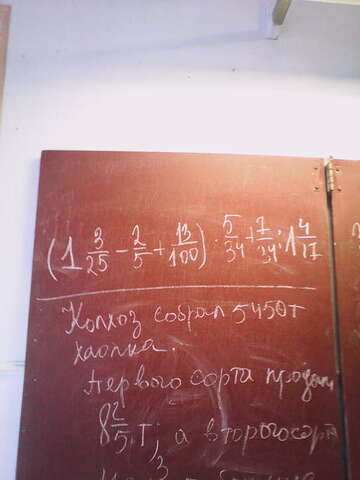 (1 3/25 - 2/5 + 13/100) · 5/34 + 7/34 : 1 4/17
Колхоз собрал 5450т
хлопка.
Первого сорта продали
8 2/5 т, а второго сорт
3